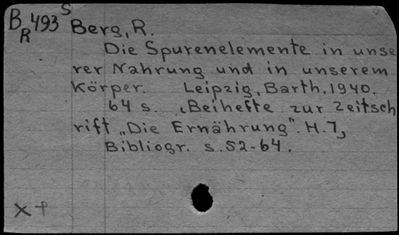 B 493 S
R
Berg, R.
Die Spurenelemente in unse
rer Nahrung und in unserem
Körper. Leipzig, Barth, 1940.
64 s. (Beihefte zur Zeitsch
rift „Die Ernährung". H. 7)
Bibliogr. s. 52-64.
x +